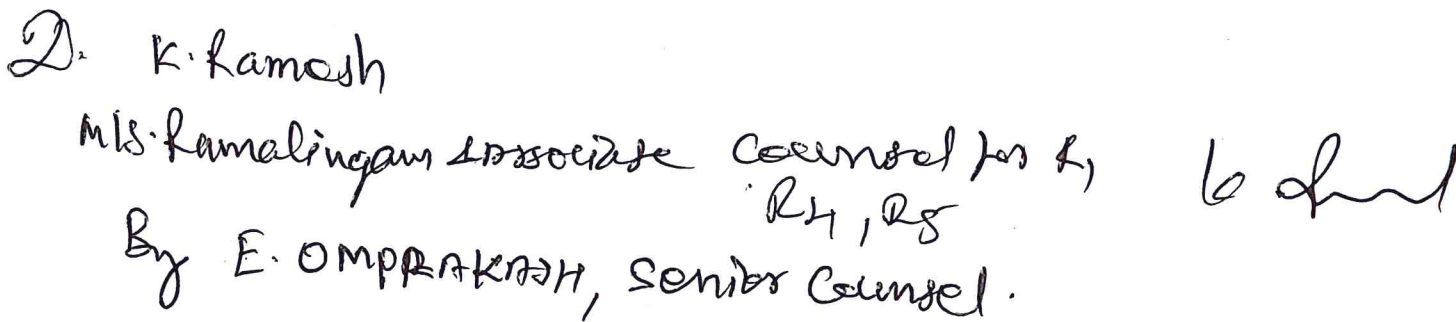 2. K. Ramesh
M/s. Ramalingam & Associate Counsel for R1,
R4, R5
By E. OMPRAKASH, Senior Counsel.